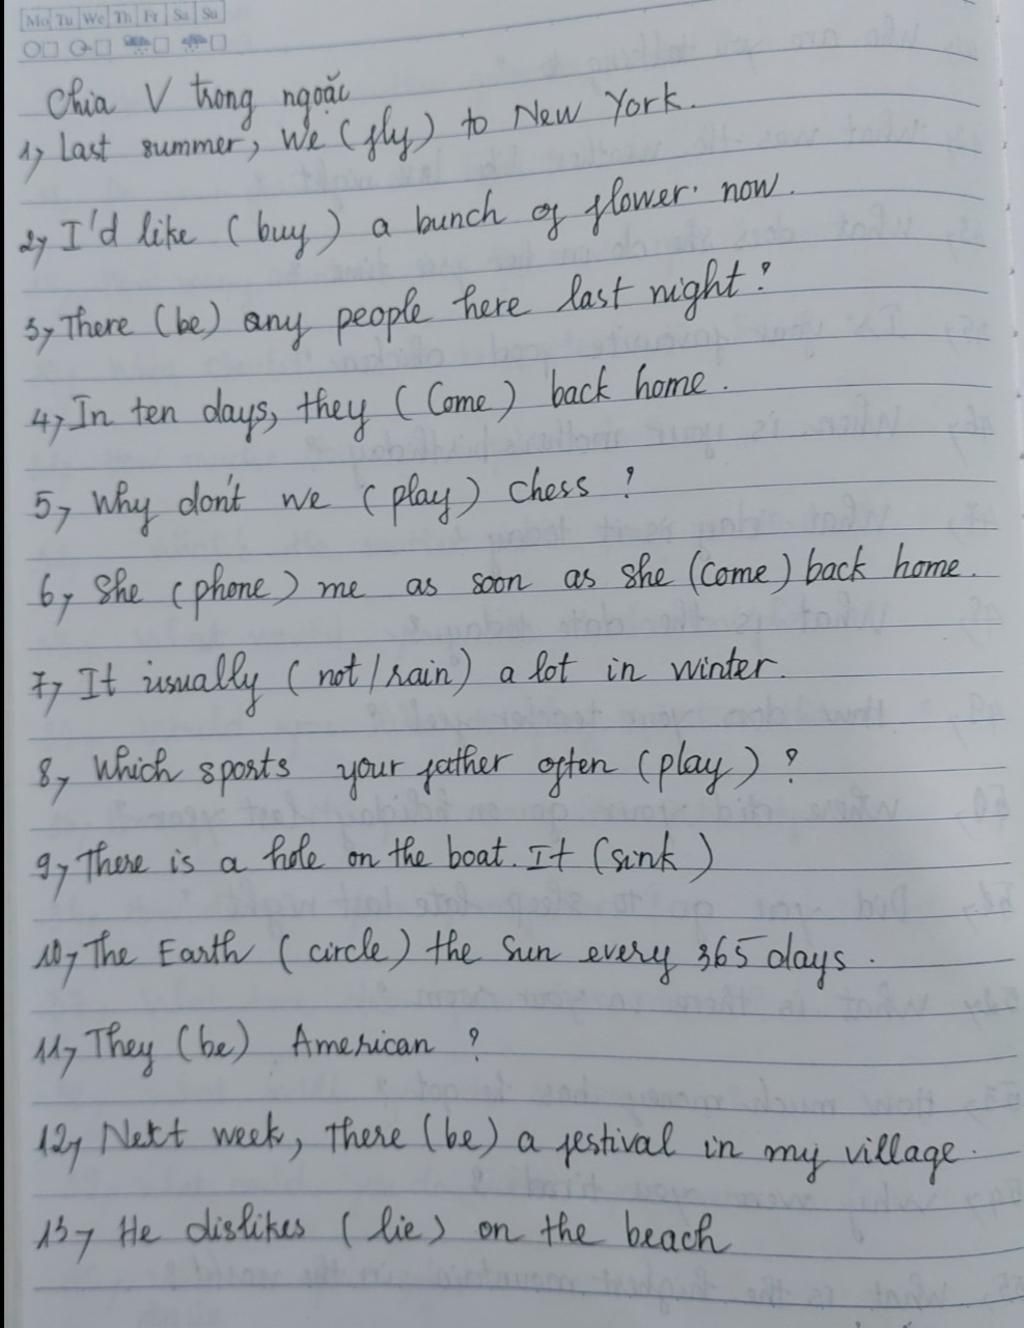 Mo Tu We Th Fr Sa Su
Chia V trong ngoặc
1, Last summer, we (fly) to New York.
2, I'd like (buy) a bunch of flower. now.
3, There (be) any people here last night?
4, In ten days, they (Come) back home.
5, Why don't we (play) chess?
6, She (phone) me as soon as she (come) back home.
7, It usually (not/rain) a lot in winter.
8, Which sports your father often (play)?
9, There is a hole on the boat. It (sink)
10, The Earth (circle) the Sun every 365 days.
11, They (be) American?
12, Next week, there (be) a festival in my village.
13, He dislikes (lie) on the beach